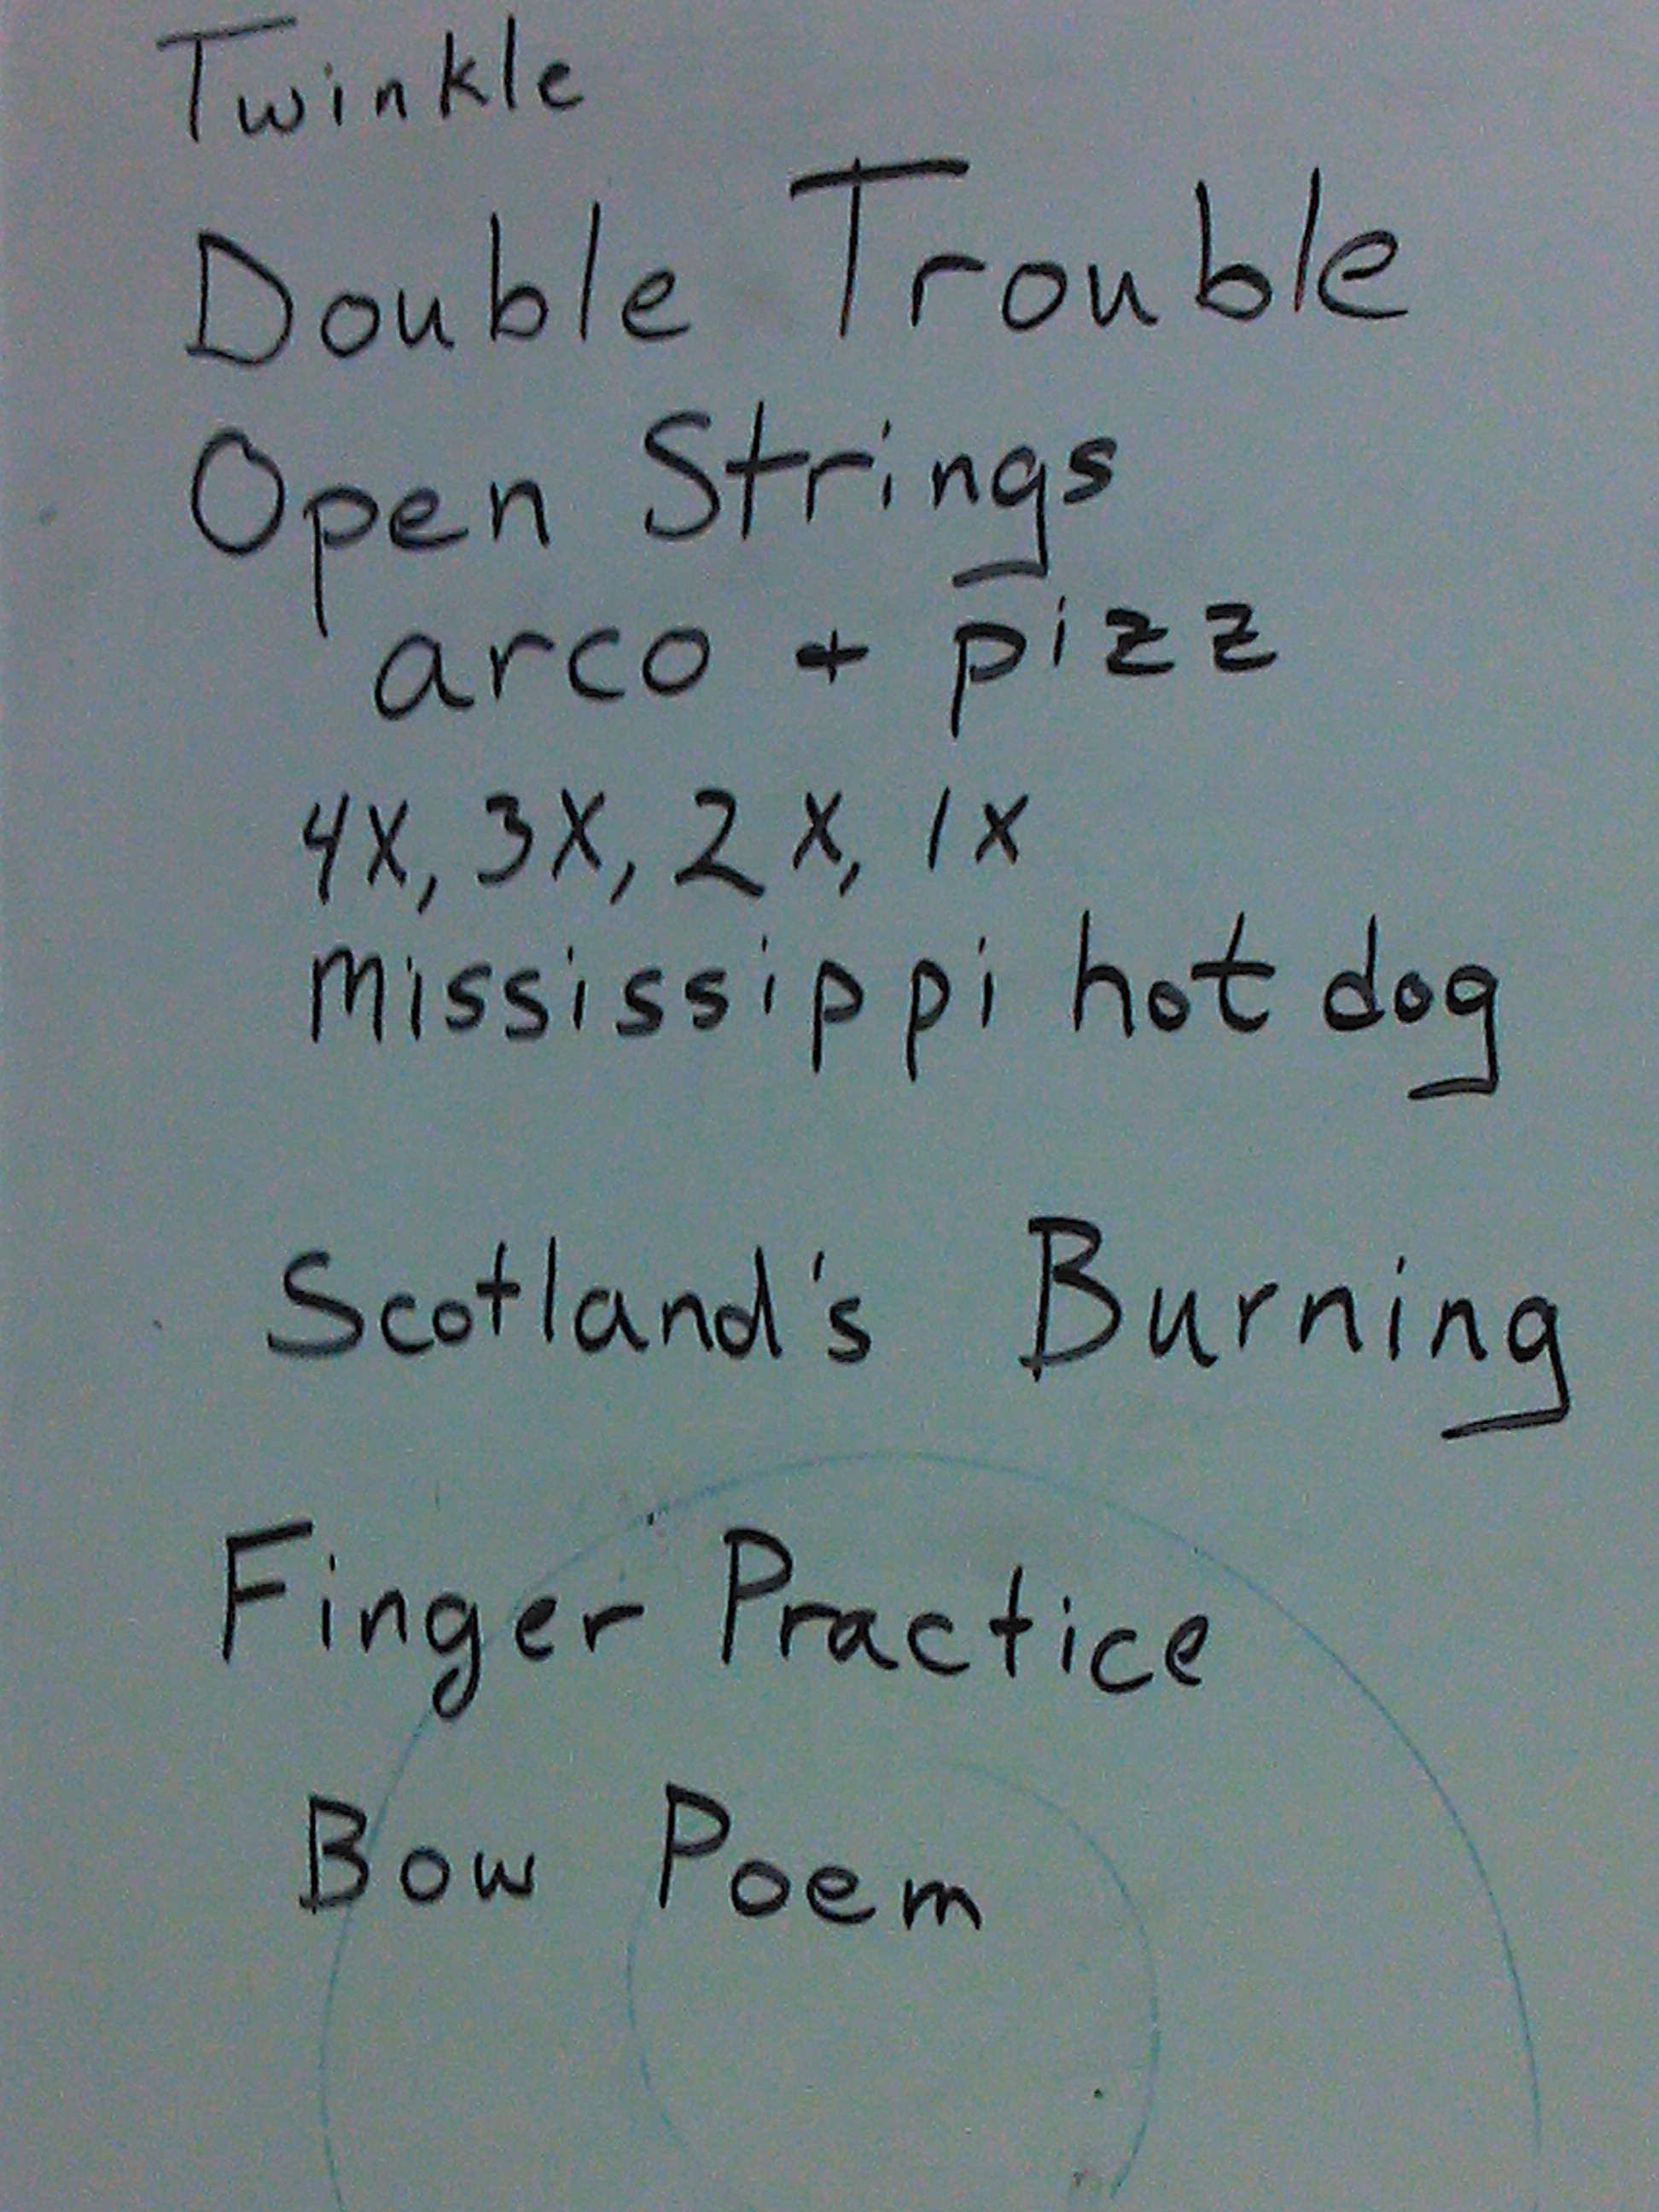 Twinkle
Double Trouble
Open Strings
arco + pizz
4x, 3x, 2x, 1x
mississippi hot dog
Scotland's Burning
Finger Practice
Bow Poem